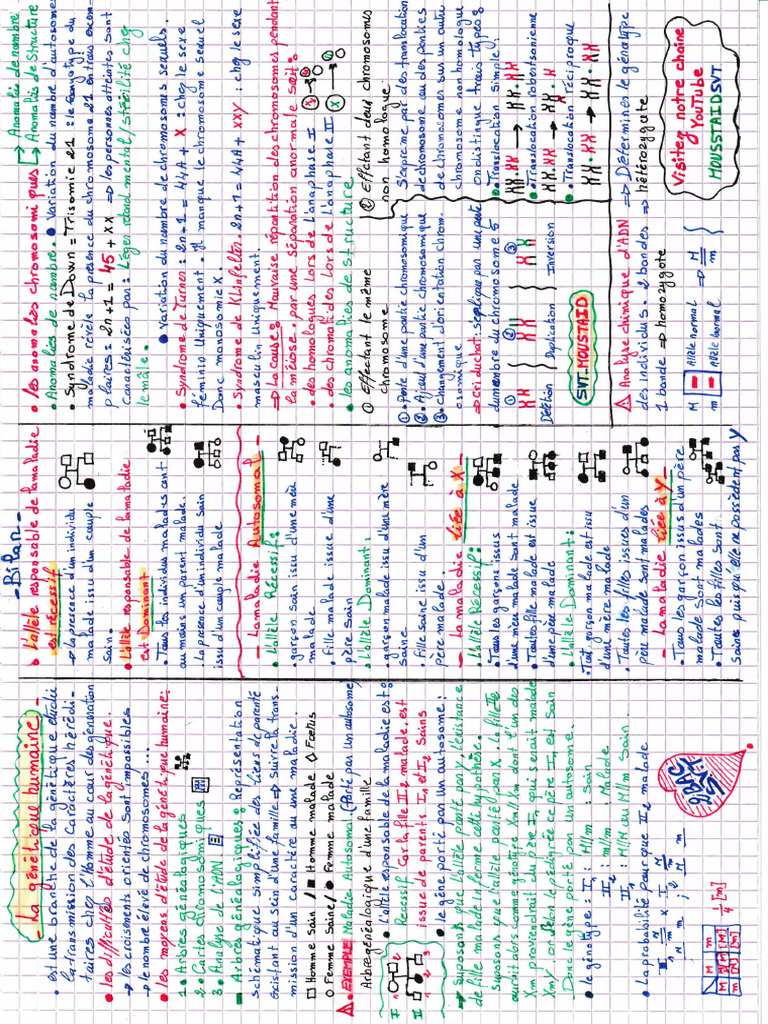 - La génétique humaine -
• est une branche de la génétique étudie
la transmission des Caractères hérédi-
taires chez l'Homme au cour des génération
• les difficultés d'étude de la génétique.
→ les croisements orientés sont impossibles
→ le nombre élevé de chromosomes ...
• les moyens d'étude de la génétique humaine:
1. Arbres généalogiques
2. Cartes chromosomiques
3. Analyse de l'ADN
- Arbres généalogiques: Représentation
schématique simplifiée des liens de parenté
existant au sein d'une famille ⇒ suivre la trans-
mission d'un caractère ou une maladie.
□ Homme Sain / ■ Homme malade ◇ Fœtus
○ Femme Saine / ● Femme malade
⚠ EXEMPLE Maladie Autosomal (Porté par un autosome)
Arbre généalogique d'une famille
I 1 2
II 1 2 3
• L'allèle responsable de la maladie est
Recessif Car la fille II2 malade est
issue de parents I1 et I2 Sains
• le gène porté par un autosome:
→ Supposons que l'allèle porté par Y. l'existance
de fille malade infirme cette hypothèse.
Supposons que l'allèle porté par X. la fille II2
aurait alors comme génotype Xm//Xm dont l'un des
Xm proviendrait du père I1 qui serait malade
XmY or dans ce pédigrée ce père I1 est Sain
Donc le gène porté par un autosome.
• le génotype: I1 : M//m : Sain
II2 : m//m : Malade
II3 : M//M ou M//m Sain
• La probabilité pour que II2 malade
I1 M/m × I2 M/m
M m
M [M] [M]
m [M] [m]
1/4 [m]
2BAC
SVT
- Bilan -
• L'allèle responsable de la maladie
est récessif
→ La présence d'un individu
malade issu d'un couple
Sain.
• L'allèle responsable de la maladie
est Dominant
- Tous les individus malades ont
au moins un parent malade.
La présence d'un individu sain
issu d'un couple malade
- La maladie Autosomal -
• L'allèle Récessif:
garçon sain issu d'une mère
malade.
• Fille malade issue d'une
père Sain
• L'allèle Dominant:
• garçon malade issu d'une mère
Saine
• Fille saine issu d'un
père malade.
- La maladie liée à X -
• L'allèle Récessif:
• Tous les garçons issus
d'une mère malade sont malade
• Toutes fille malade est issue
d'un père malade
• L'allèle Dominant:
Tout garçon malade est issu
d'une mère malade
• Toutes les filles issues d'un
père malade sont malades
- La maladie liée à Y -
• Tous les garçon issus d'un père
malade sont malades
• Toutes les filles sont
Saines puis qu'elle ne possèdent pas Y
• les anomalies chromosomiques → Anomalie de nombre
→ Anomalie de Structure
• Anomalies de nombre. • Variation du nombre d'autosomes
• Syndrome de Down = Trisomie 21 : le caryotype du
malade révèle la présence du chromosome 21 en trois exem-
plaires = 2n+1 = 45 + XX ⇒ les personnes atteintes sont
caractérisées par: Léger retard mental / stérilité chez
le mâle.
• Variation du nombre de chromosomes sexuels.
• Syndrome de Turner: 2n-1 = 44A + X : chez le sexe
féminin Uniquement. Il manque le chromosome sexuel
Donc monosomie X.
• Syndrome de Klinfelter: 2n+1 = 44A + XXY : chez le sexe
masculin Uniquement.
⇒ La cause: Mauvaise répartition des chromosomes pendant
la méiose par une séparation anormale soit:
• des homologues Lors de l'anaphase I
• des chromatides Lors de l'anaphase II
• les anomalies de Structure
① Effectant le même
chromosome
① Perte d'une partie chromosomique
② Ajout d'une partie chromosomique
③ Changement d'orientation chrom-
osomique
⇒ Cri du chat: s'explique par une perte
du membre du chromosome 5
① ② ③
Délétion Duplication Inversion
SVT.MOUSTAID
② Effectant deux chromosomes
non homologue
S'exprime par des translocation
de chromosome ou des parties
de chromatomes sur un autre
chromosome non homologue
on distingue trois types:
• Translocation Simple:
• Translocation Robertsonienne
• Translocation réciproque
⚠ Analyse chimique d'ADN ⇒ Déterminer le génotype
des individus. 2 bandes ⇒ hétérozygote
1 bande ⇒ homozygote
M Allèle normal
m Allèle anormal
⇒ M/m
Visitez notre chaine
YouTube
MOUSSTAIDSVT